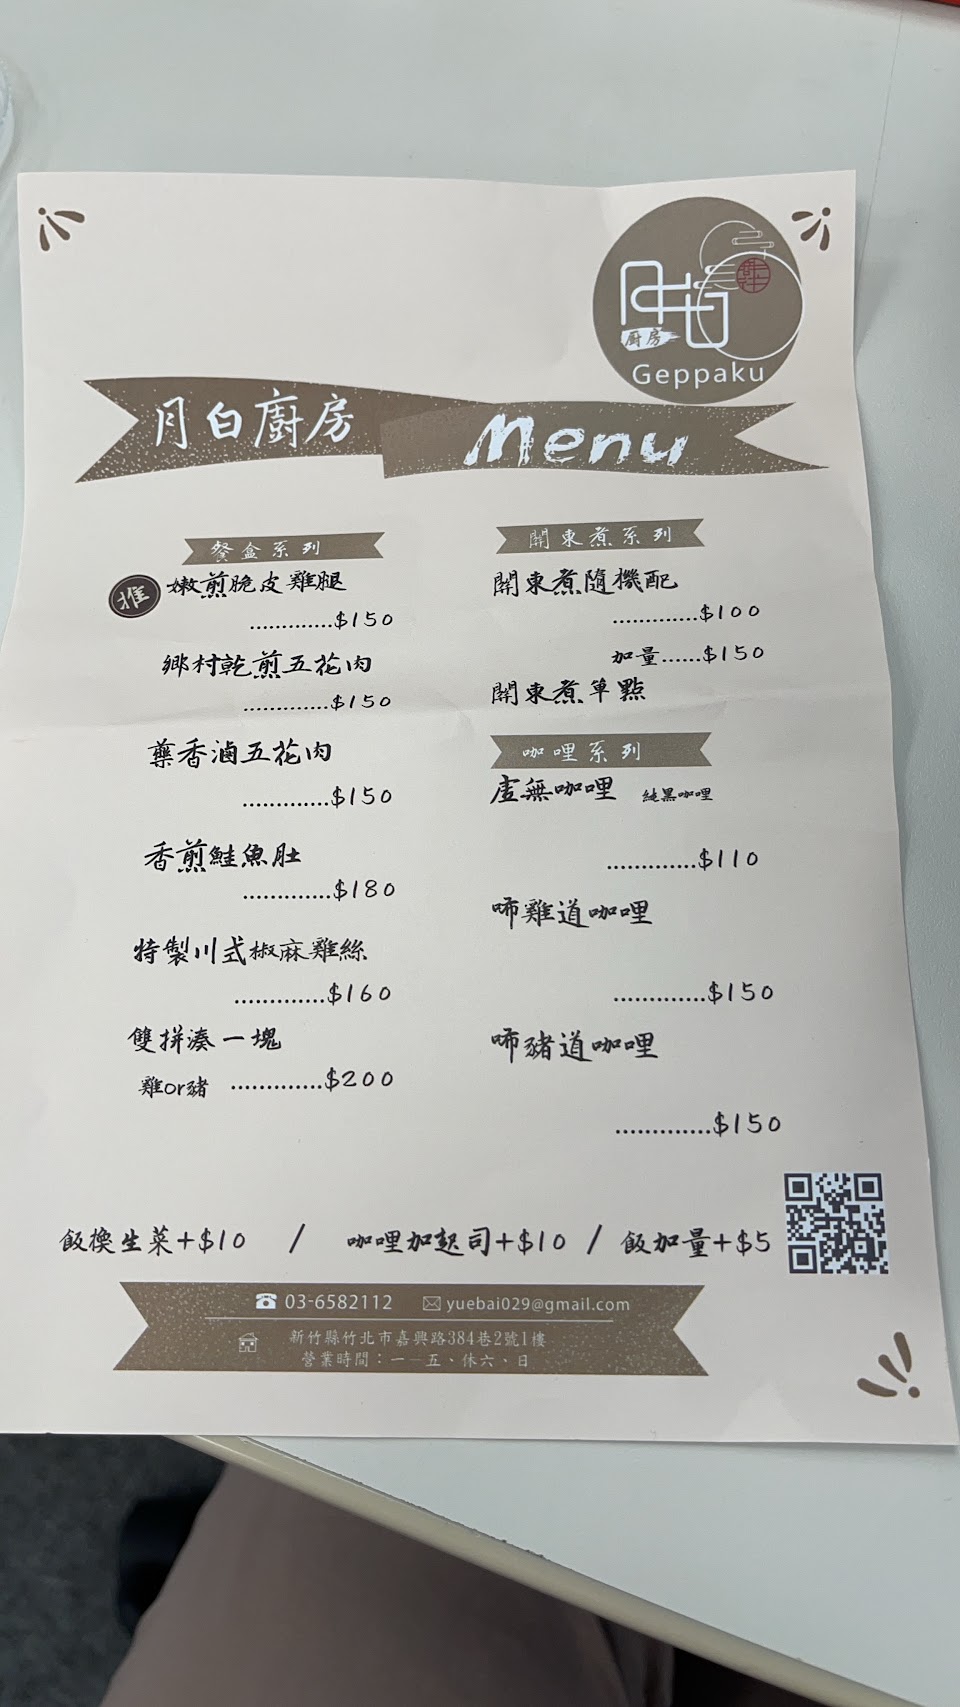 月白
廚房
Geppaku
月白廚房
Menu
餐盒系列
推 嫩煎脆皮雞腿
.............$150
鄉村乾煎五花肉
.............$150
藥香滷五花肉
.............$150
香煎鮭魚肚
.............$180
特製川式椒麻雞絲
.............$160
雙拼湊一塊
雞or豬 .............$200
關東煮系列
關東煮隨機配
.............$100
加量......$150
關東煮單點
咖哩系列
虛無咖哩 純黑咖哩
.............$110
啼雞道咖哩
.............$150
啼豬道咖哩
.............$150
飯換生菜+$10 / 咖哩加起司+$10 / 飯加量+$5
03-6582112 yuebai029@gmail.com
新竹縣竹北市嘉興路384巷2號1樓
營業時間：一─五、休六、日